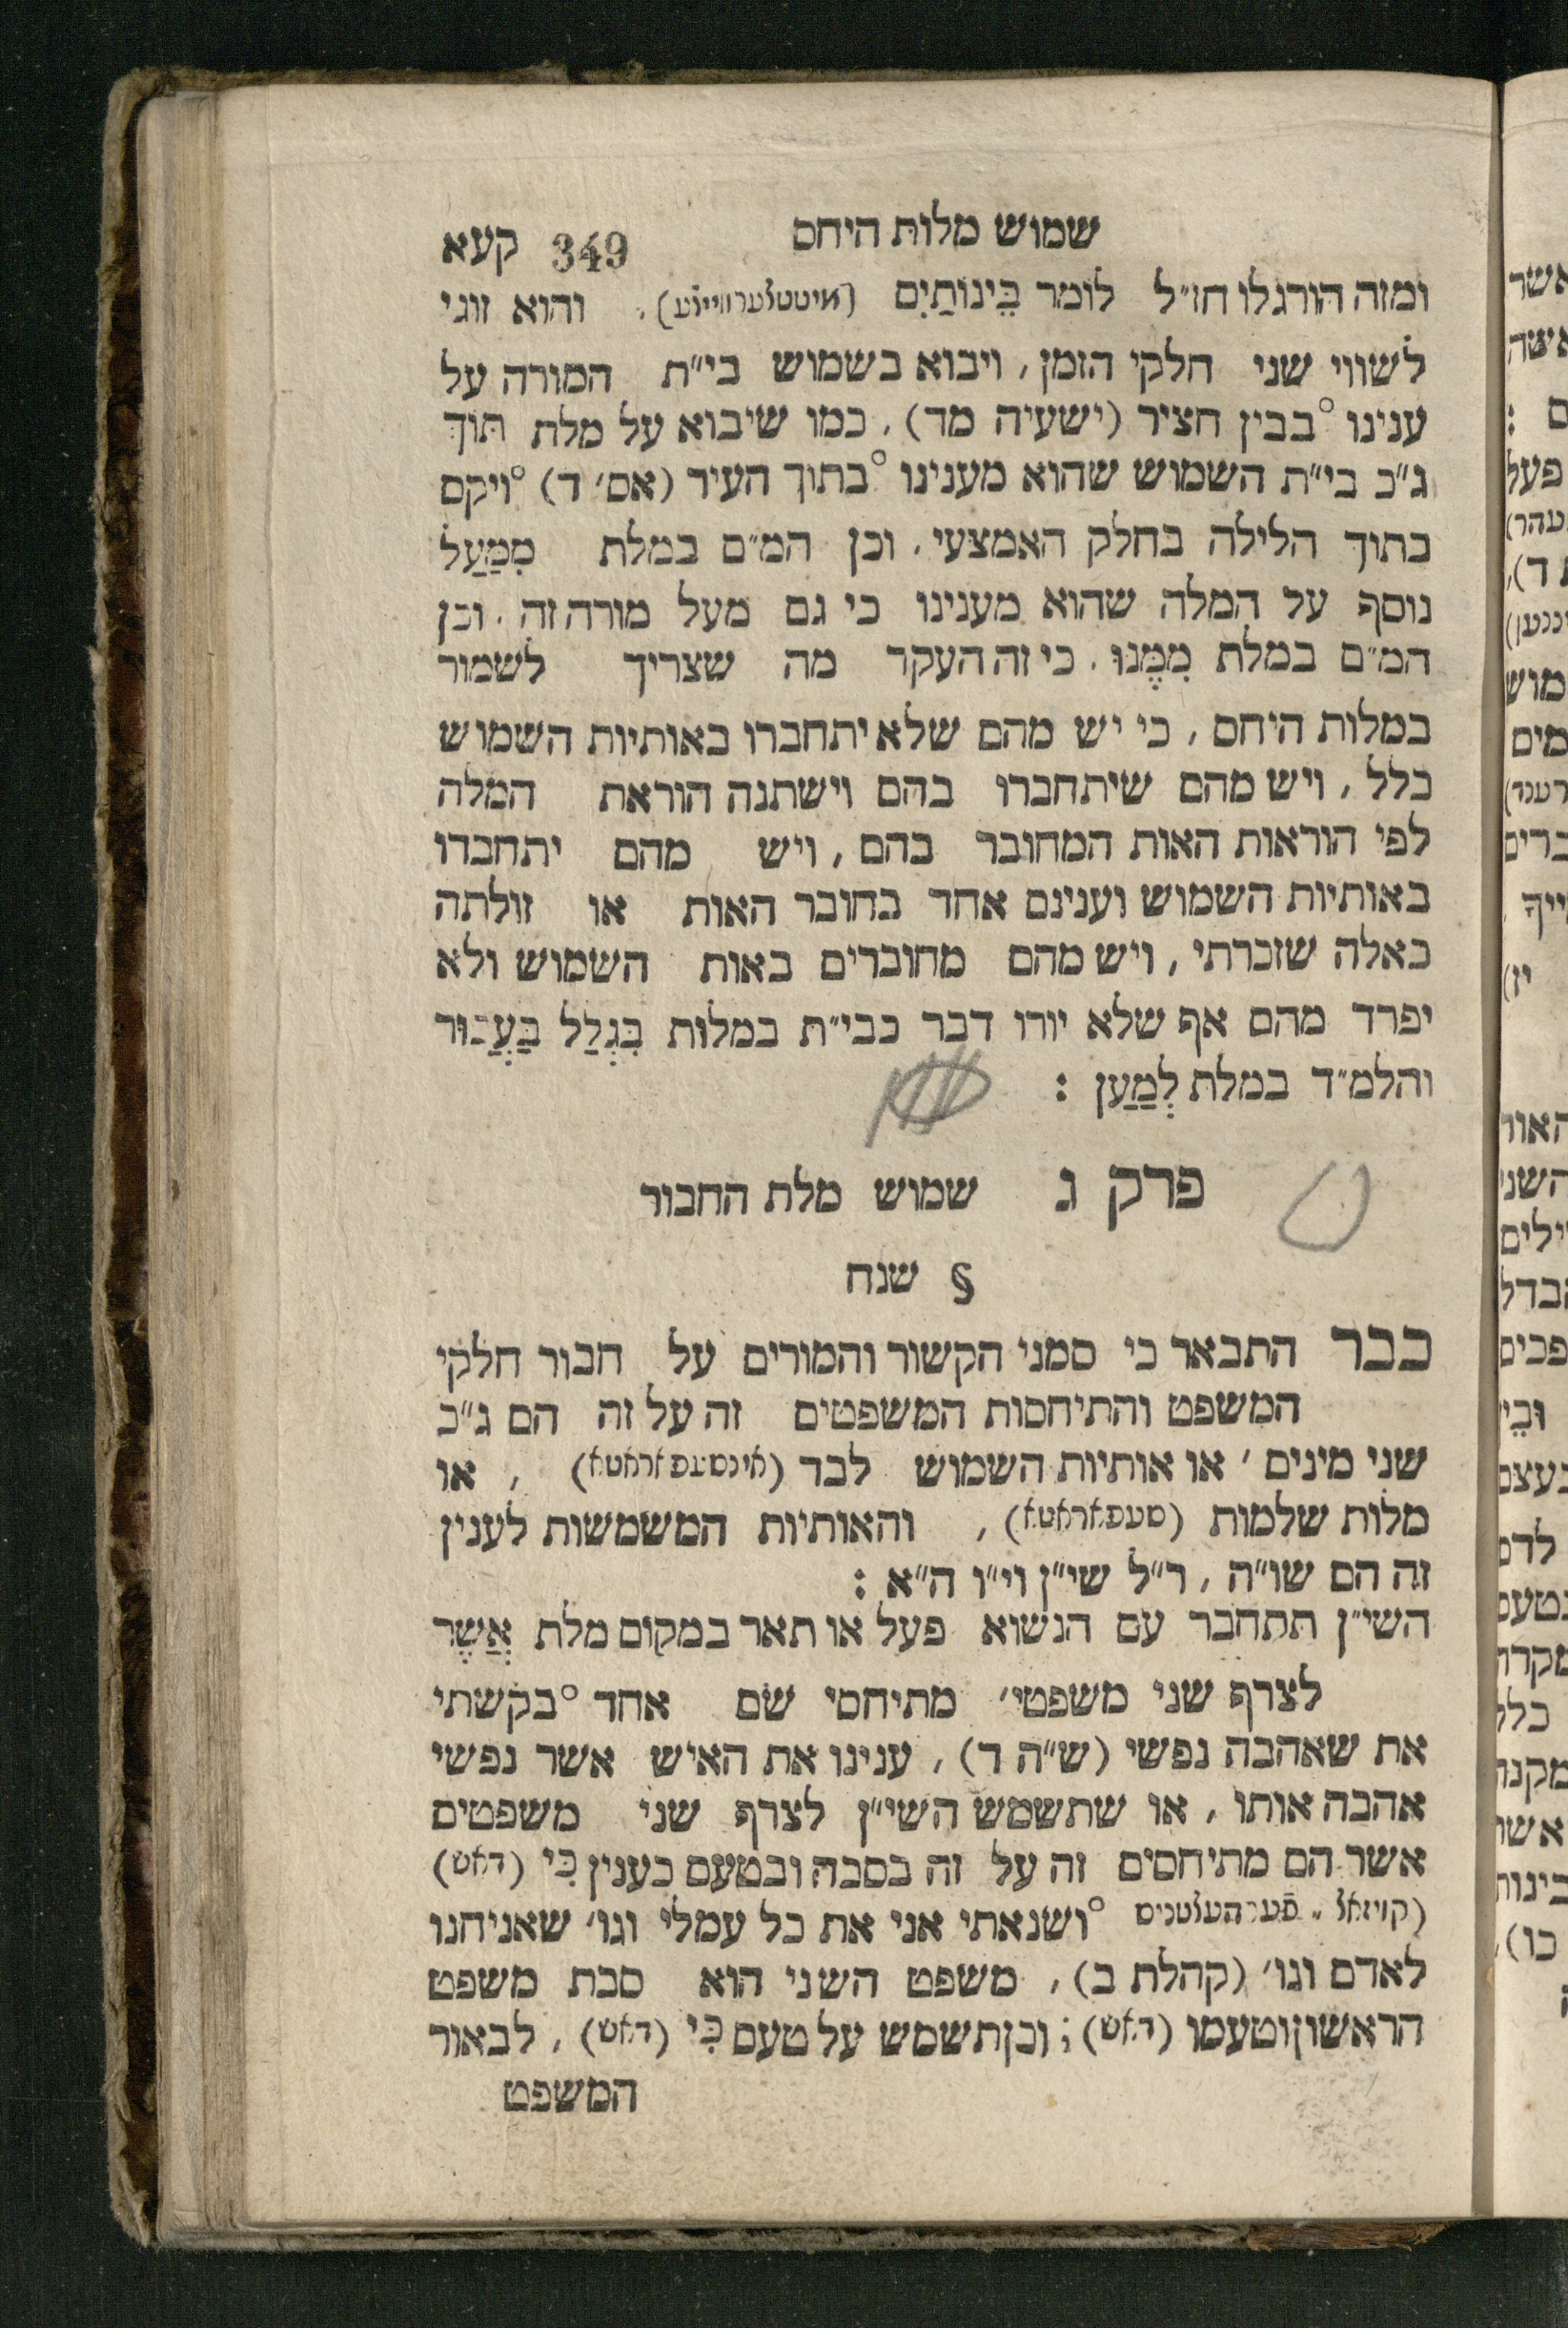 שמוש מלות היחס 349 קעא
ומזה הורגלו חז״ל לומר בֵּינוֹתַיִם (מיטטלערווייזע). והוא זוגי
לשווי שני חלקי הזמן, ויבוא בשמוש בי״ת המורה על
ענינו °בבין חציר (ישעיה מד), כמו שיבוא על מלת תּוֹך
ג״כ בי״ת השמוש שהוא מענינו °בתוך העיר (אס׳ ד) °ויקם
בתוך הלילה בחלק האמצעי. וכן המ״ם במלת מִמַּעַל
נוסף על המלה שהוא מענינו כי גם מעל מורה זה. וכן
המ״ם במלת מִמֶּנּוּ. כי זה העקר מה שצריך לשמור
במלות היחס, כי יש מהם שלא יתחברו באותיות השמוש
כלל, ויש מהם שיתחברו בהם וישתנה הוראת המלה
לפי הוראות האות המחובר בהם, ויש מהם יתחברו
באותיות השמוש וענינם אחד בחובר האות או זולתה
כאלה שזכרתי, ויש מהם מחוברים באות השמוש ולא
יפרד מהם אף שלא יורו דבר כבי״ת במלות בִּגְלַל בַּעֲבוּר
והלמ״ד במלת לְמַעַן :
פרק ג שמוש מלת החבור
§ שנח
כבר התבאר כי סמני הקשור והמורים על חבור חלקי
המשפט והתיחסות המשפטים זה על זה הם ג״כ
שני מינים ׳ או אותיות השמוש לבד (אינסעפאראטא) , או
מלות שלמות (סעפאראטא) , והאותיות המשמשות לענין
זה הם שו״ה, ר״ל שי״ן וי״ו ה״א :
השי״ן תתחבר עם הנשוא פעל או תאר במקום מלת אֲשֶׁר
לצרף שני משפטי׳ מתיחסי שׂם אחד °בקשתי
את שאהבה נפשי (ש״ה ד), ענינו את האיש אשר נפשי
אהבה אותו, או שתשמש השי״ן לצרף שני משפטים
אשר הם מתיחסים זה על זה בסבה ובטעם כענין כִּי (דאש)
(קויזאל פערהעלטניס °ושנאתי אני את כל עמלי וגו׳ שאניחנו
לאדם וגו׳ (קהלת ב), משפט השני הוא סבת משפט
הראשון וטעמו (דאש) ; וכן תשמש על טעם כִּי (דאש), לבאור
המשפט